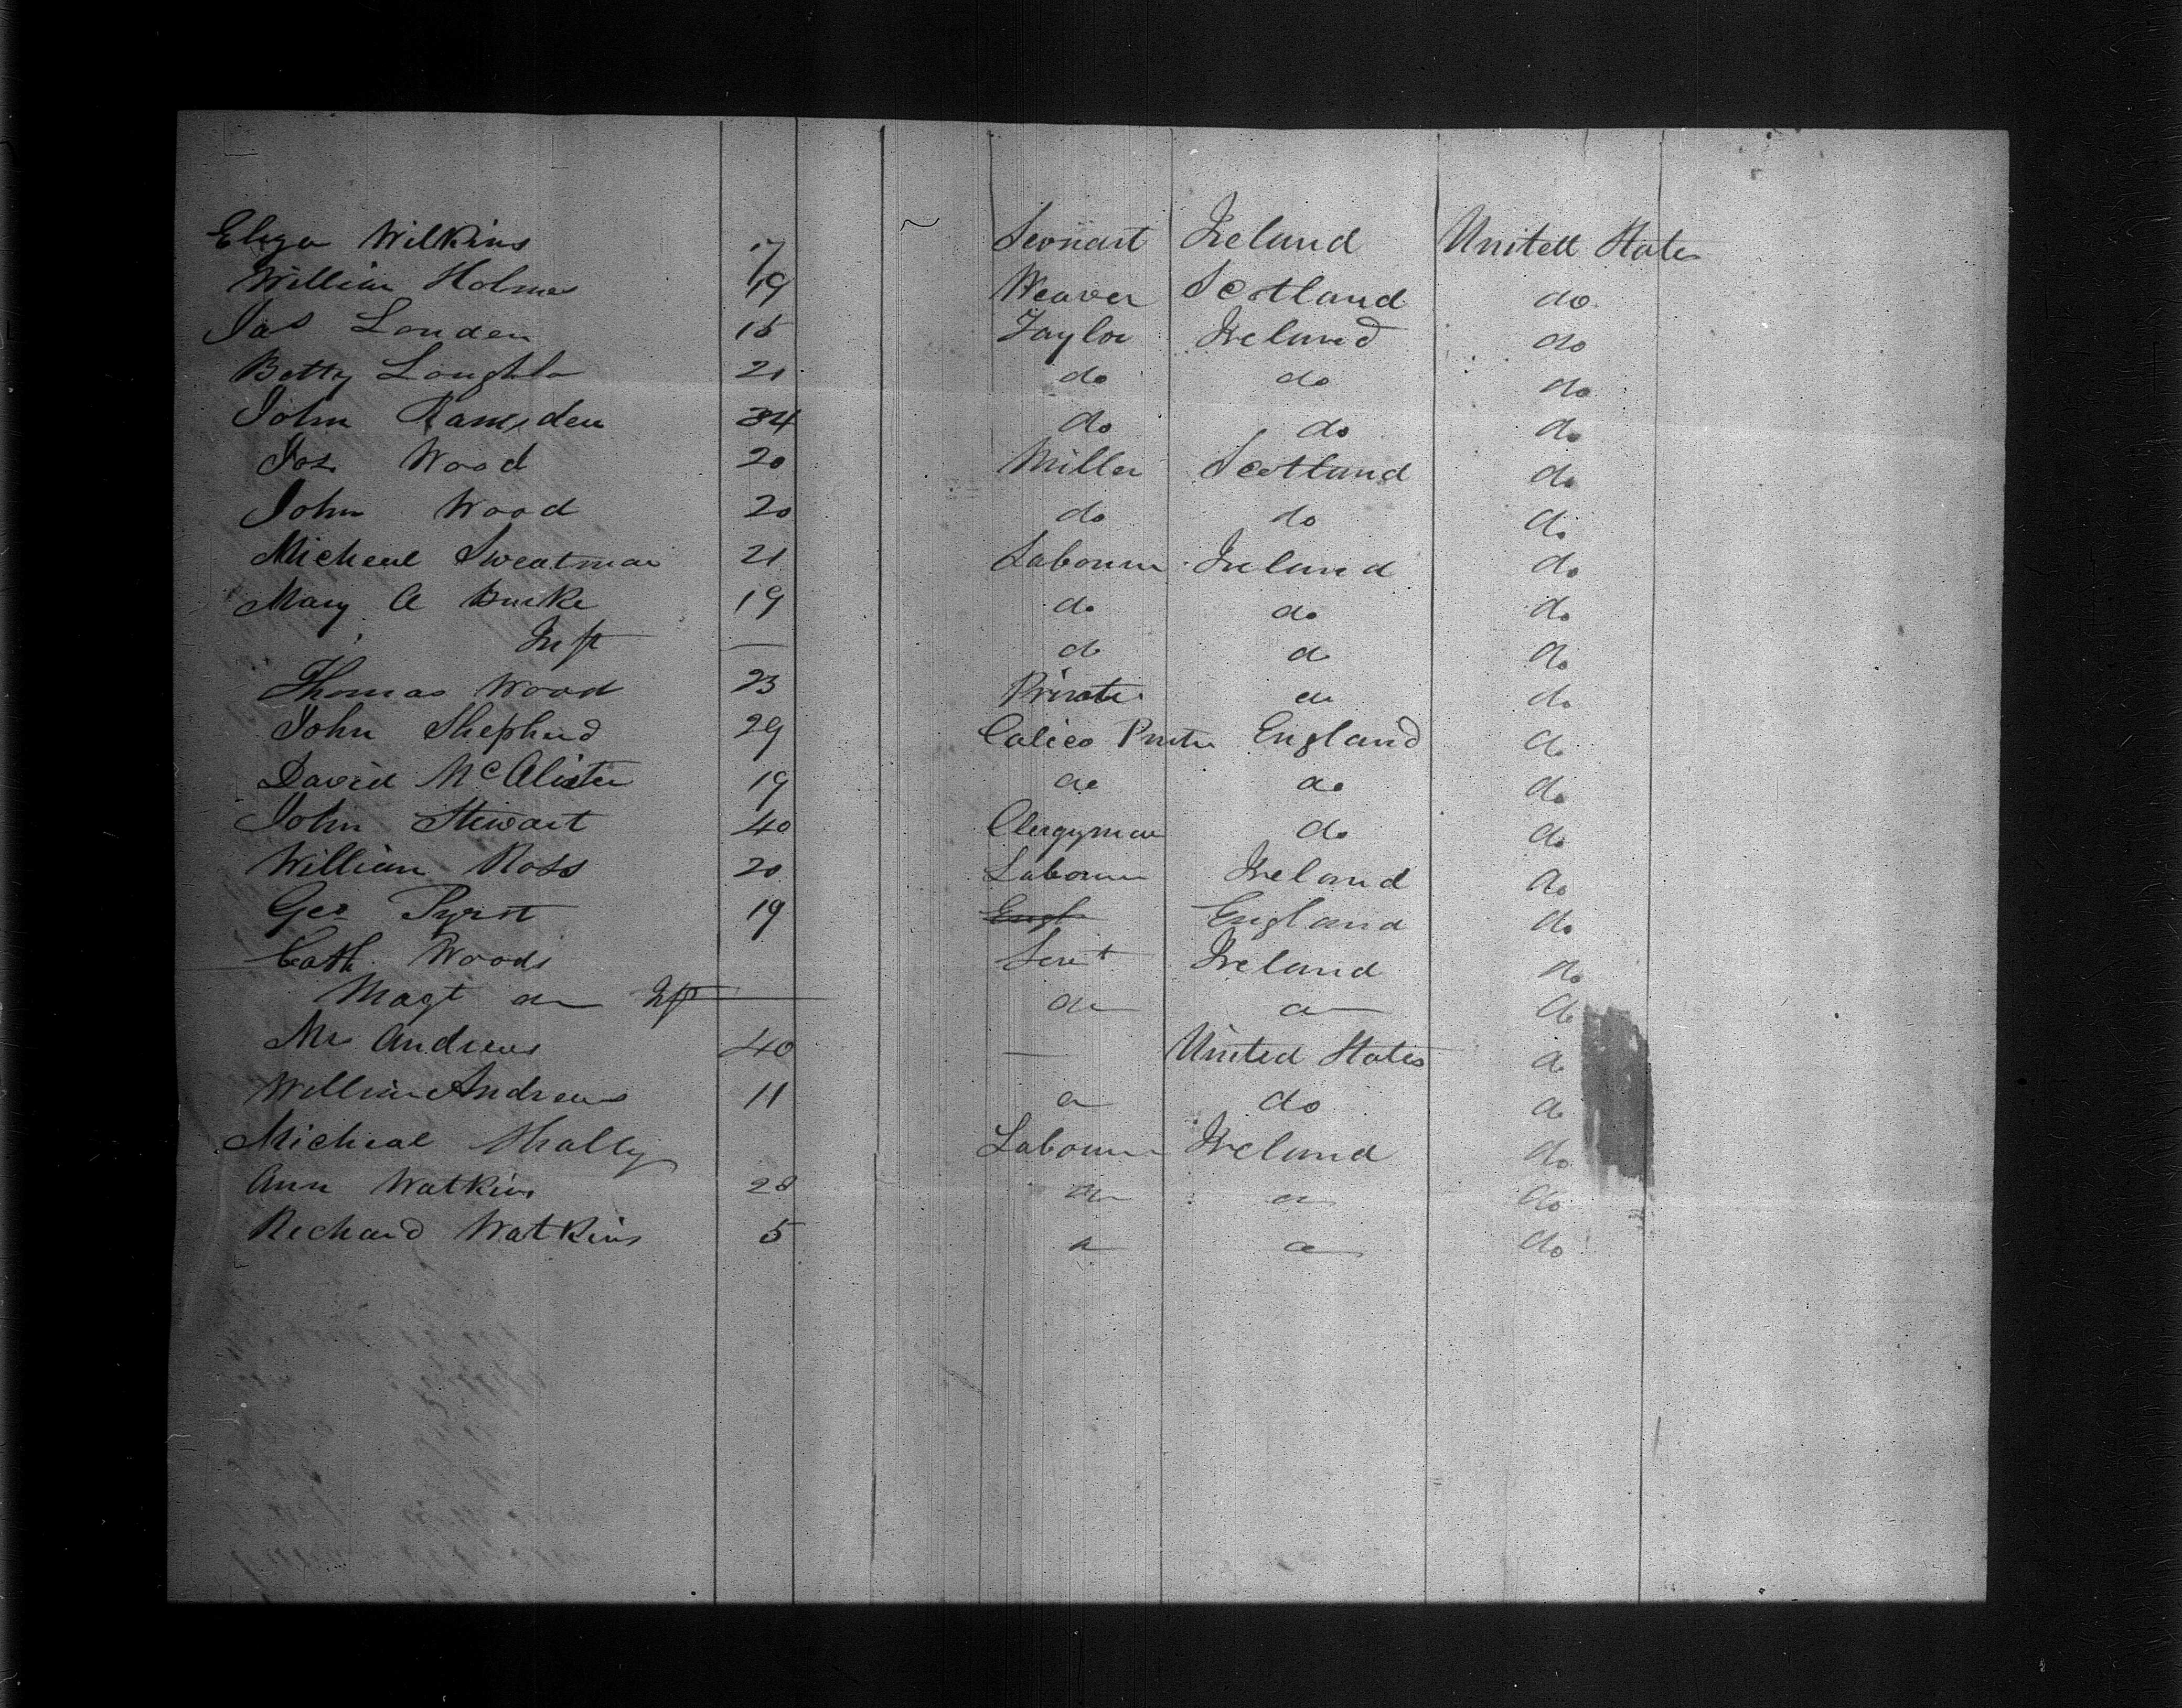 Eliza Wilkins 17 Servant Ireland United States
William Holmes 19 Weaver Scotland do
Jas Louden 15 Taylor Ireland do
Betty 21 do do do
John Ramsden 34 do do do
Jos Wood 20 Miller Scotland do
John Wood 20 do do do
Micheal Sweatman 21 Labourer Ireland do
Mary A Burke 19 do do do
Inft — do do do
Thomas Wood 23 Private do do
John Shepherd 29 Calico Printer England do
David McAlister 19 do do do
John Stewart 40 Clergyman do do
William Ross 20 Labourer Ireland do
Geo 19 Engl England do
Cath Woods Servt Ireland do
Magt do Inft do do do
Mr Andrews 40 — United States do
William Andrews 11 do do do
Micheal Labourer Ireland do
Ann Watkins 28 do do do
Richard Watkins 5 do do do